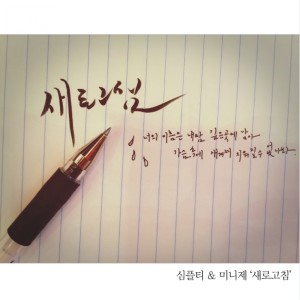 새로고침
너의 이름은 내 맘 깊은곳에 남아
가슴 속에 새겨져 지워질수 없나봐
심플티 & 미니제 '새로고침'